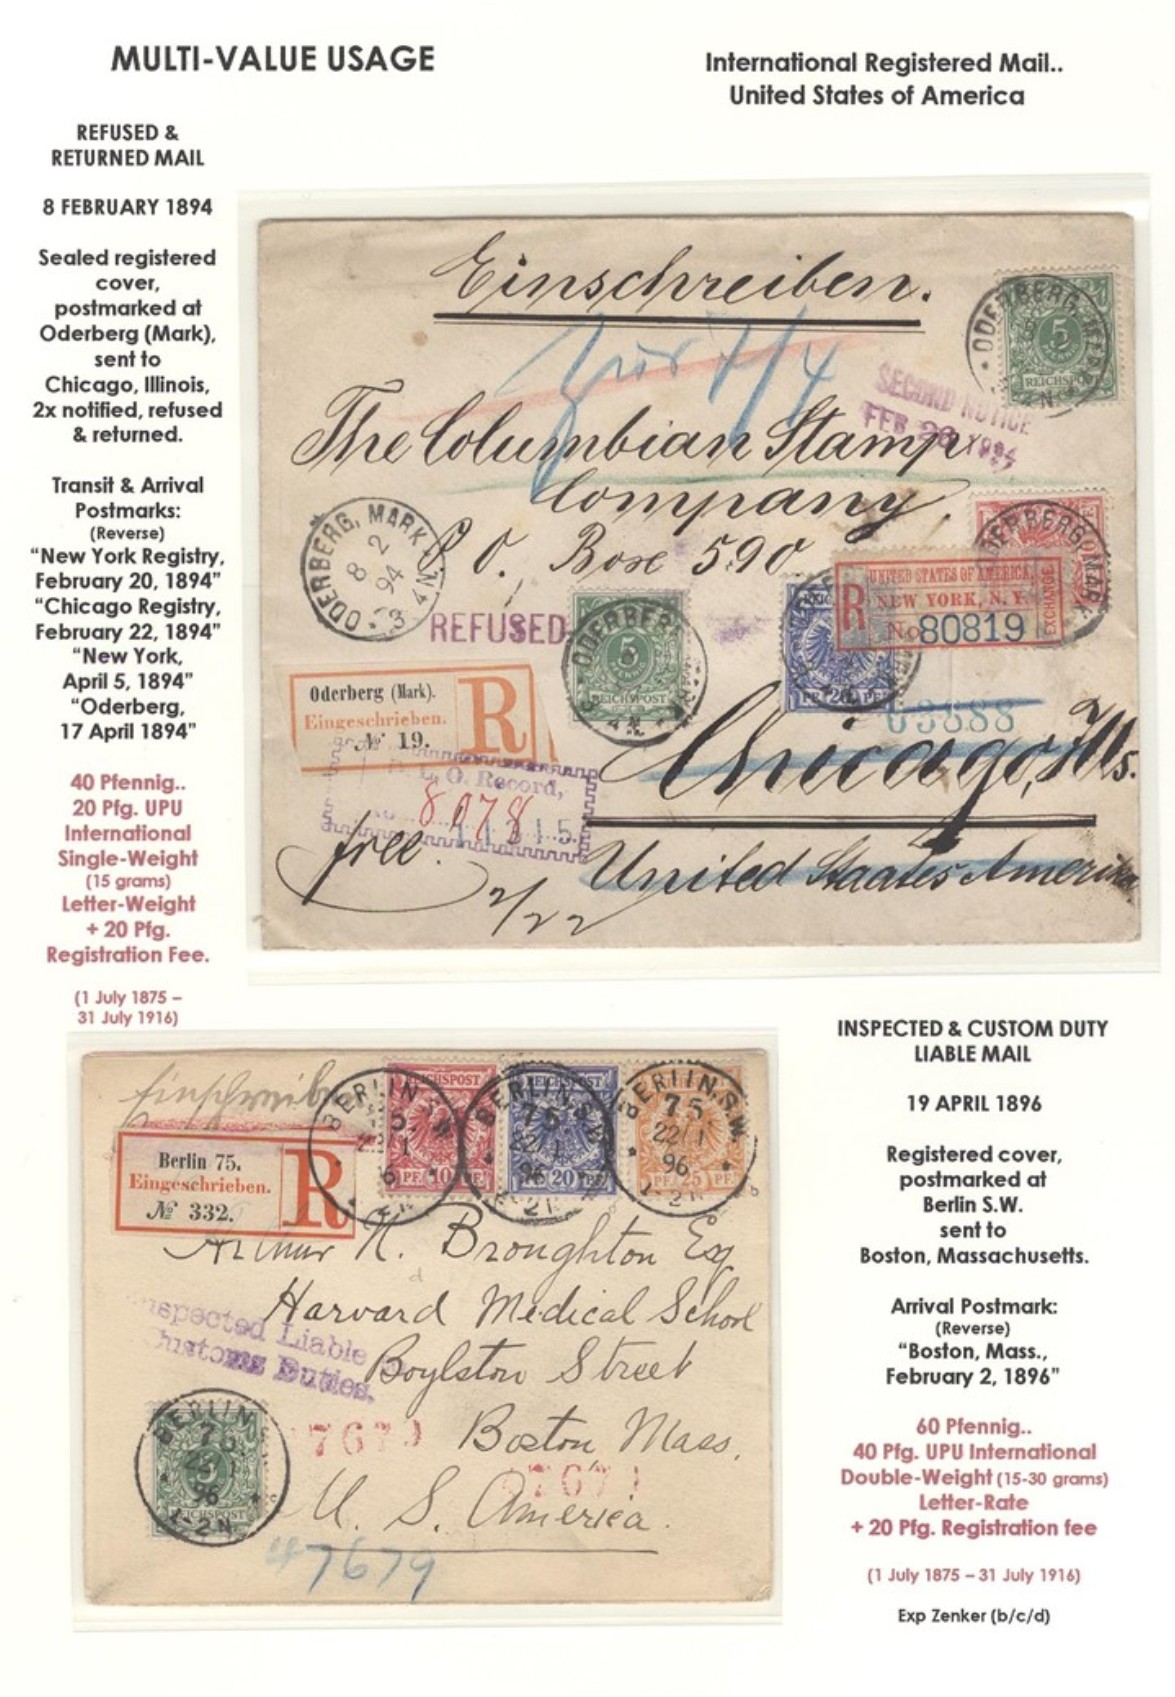 MULTI-VALUE USAGE
International Registered Mail..
United States of America
REFUSED &
RETURNED MAIL
8 FEBRUARY 1894
Sealed registered
cover,
postmarked at
Oderberg (Mark),
sent to
Chicago, Illinois,
2x notified, refused
& returned.
Transit & Arrival
Postmarks:
(Reverse)
“New York Registry,
February 20, 1894”
“Chicago Registry,
February 22, 1894”
“New York,
April 5, 1894”
“Oderberg,
17 April 1894”
40 Pfennig..
20 Pfg. UPU
International
Single-Weight
(15 grams)
Letter-Weight
+ 20 Pfg.
Registration Fee.
(1 July 1875 –
31 July 1916)
Einschreiben.
ODERBERG
5
REICHSPOST
SECOND NOTICE
FEB 26 1894
The Columbian Stamp
Company.
P. O. Box 590
ODERBERG, MARK
8 2
94
3-4 N.
REFUSED
ODERBERG
5
REICHSPOST
20 PF
ODERBERG, MARK
UNITED STATES OF AMERICA.
R NEW YORK, N. Y.
No 80819
EXCHANGE
63888
Oderberg (Mark).
Eingeschrieben.
№ 19.
R
D. L. O. Record,
8078
11315
Chicago, Ills.
free.
United Staates Amerika
2/22
Einschreiben
Berlin 75.
Eingeschrieben.
№ 332.
R
REICHSPOST
PF. 10
REICHSPOST
PF. 20 PF.
PF. 25 PF.
BERLIN S.W.
BERLIN S.W.
75
22/1
96
BERLIN.S.W.
75
22/1
96
1-2N
Arthur N. Broughton Esq
Harvard Medical School
Boylston Street
Boston Mass.
U. S. America.
Inspected Liable
Customs Duties.
BERLIN
75
96
1-2N
5
REICHSPOST
7679
767
47679
INSPECTED & CUSTOM DUTY
LIABLE MAIL
19 APRIL 1896
Registered cover,
postmarked at
Berlin S.W.
sent to
Boston, Massachusetts.
Arrival Postmark:
(Reverse)
“Boston, Mass.,
February 2, 1896”
60 Pfennig..
40 Pfg. UPU International
Double-Weight (15-30 grams)
Letter-Rate
+ 20 Pfg. Registration fee
(1 July 1875 – 31 July 1916)
Exp Zenker (b/c/d)